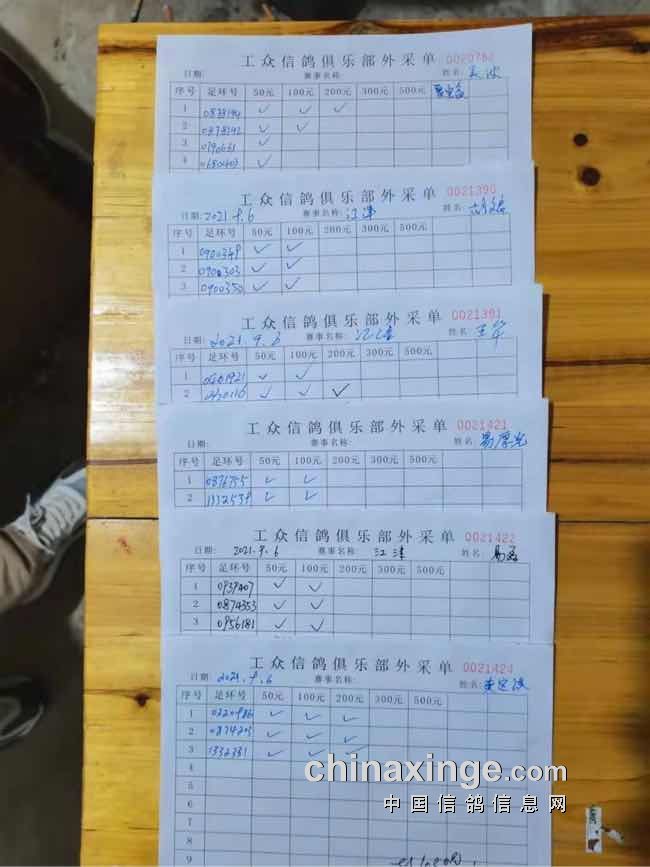 工众信鸽俱乐部外采单 0020762
日期: 赛事名称: 姓名:
序号 足环号 50元 100元 200元 300元 500元
1 ✓ ✓ ✓
2 ✓ ✓
3 ✓
4 ✓
工众信鸽俱乐部外采单 0021390
日期: 2021.9.6 赛事名称: 江津 姓名:
序号 足环号 50元 100元 200元 300元 500元
1 0900349 ✓ ✓
2 0900303 ✓ ✓
3 0900350 ✓ ✓
工众信鸽俱乐部外采单 0021391
日期: 2021.9.6 赛事名称: 江津 姓名: 王华
序号 足环号 50元 100元 200元 300元 500元
1 ✓ ✓
2 ✓ ✓ ✓
工众信鸽俱乐部外采单 0021421
日期: 赛事名称: 姓名: 易厚光
序号 足环号 50元 100元 200元 300元 500元
1 0876755 ✓ ✓
2 1332539 ✓ ✓
工众信鸽俱乐部外采单 0021422
日期: 2021.9.6 赛事名称: 江津 姓名: 易
序号 足环号 50元 100元 200元 300元 500元
1 0939407 ✓ ✓
2 0874353 ✓ ✓
3 0956181 ✓ ✓
工众信鸽俱乐部外采单 0021424
日期: 2021.9.6 赛事名称: 姓名:
序号 足环号 50元 100元 200元 300元 500元
1 0220986 ✓ ✓ ✓
2 0874205 ✓ ✓ ✓
3 1332331 ✓ ✓ ✓
4
5
6
7
8
9
chinaxinge.com
中国信鸽信息网